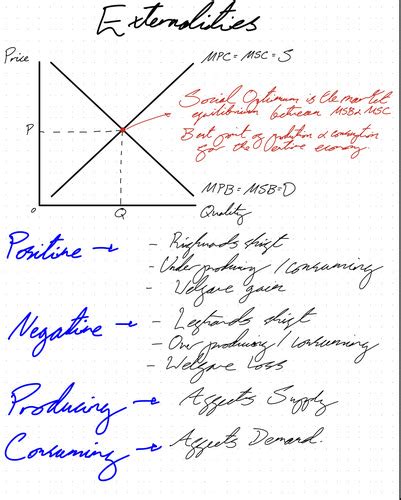 Externalities
Price
MPC = MSC = S
Social Optimum is the market
equilibrium between MSB & MSC
Best point of production & consumption
for the entire economy.
P
MPB = MSB = D
0
Q
Quality
Positive → - Rightwards shift
- Under producing / consuming
- Welfare gain
Negative → - Leftwards shift
- Over producing / consuming
- Welfare Loss
Producing → Affects Supply
Consuming → Affects Demand.